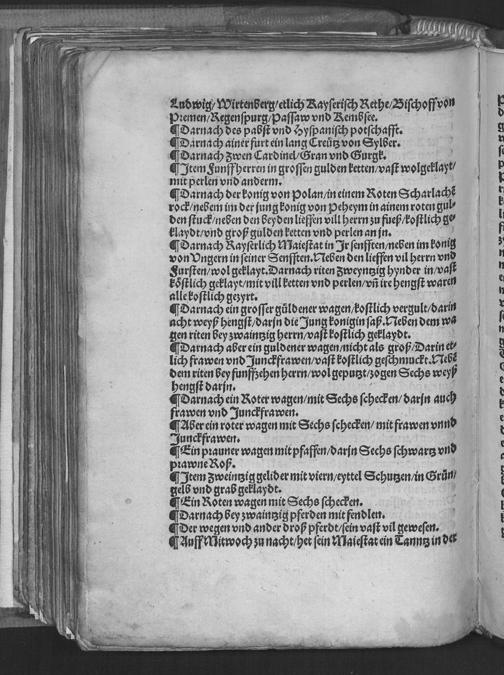 Ludwig/Wirtenberg/etlich Kayserisch Rethe/Bischoff von
Premen/Regenspurg/Passaw vnd Kembsee.
¶Darnach des pabst vnd Hyspanisch potschafft.
¶Darnach ainer furt ein lang Creütz von Sylber.
¶Darnach zwen Cardinel/Gran vnd Gurgk.
¶Item Funffherren in grossen gulden ketten/vast wolgeklayt/
mit perlen vnd anderm.
¶Darnach der konig von Polan/in einem Roten Scharlachē
rock/nebem im der jung konig von Peheym in ainem roten gul-
den stuck/neben den beyden lieffen vill herrn zu fueß/kostlich ge-
klaydt/vnd groß gulden ketten vnd perlen an jn.
¶Darnach Kayserlich Maiestat in Jr sensften/neben im konig
von Vngern in seiner Sensften. Neben den lieffen vil herrn vnd
Fursten/wol geklayt. Darnach riten zweyntzig hynder in/vast
köstlich geklayt/mit vill ketten vnd perlen/vñ ire hengst waren
alle kostlich gezyrt.
¶Darnach ein grosser güldener wagen/kostlich vergult/darin
acht weyß hengst/darjn die Jung konigin saß. Neben dem wa-
gen riten bey zwaintzig herrn/vast kostlich geklaydt.
¶Darnach aber ein guldener wagen/nicht als groß/Darin et-
lich frawen vnd Junckfrawen/vast kostlich geschmuckt. Nebē
dem riten bey funffzehen herrn/wol geputzt/zogen Sechs weyß
hengst darjn.
¶Darnach ein Roter wagen/mit Sechs schecken/darjn auch
frawen vnd Junckfrawen.
¶Aber ein roter wagen mit Sechs schecken/mit frawen vnnd
Junckfrawen.
¶Ein prauner wagen mit pfaffen/darjn Sechs schwartz vnd
prawne Roß.
¶Item zweintzig gelider mit viern/eyttel Schutzen/in Grün/
gelb vnd grab geklaydt.
¶Ein Roten wagen mit Sechs schecken.
¶Darnach bey zwaintzig pferden mit fendlen.
¶Der wegen vnd ander droß pferdt/sein vast vil gewesen.
¶Auff Mitwoch zu nacht/het sein Maiestat ein Tanntz in der